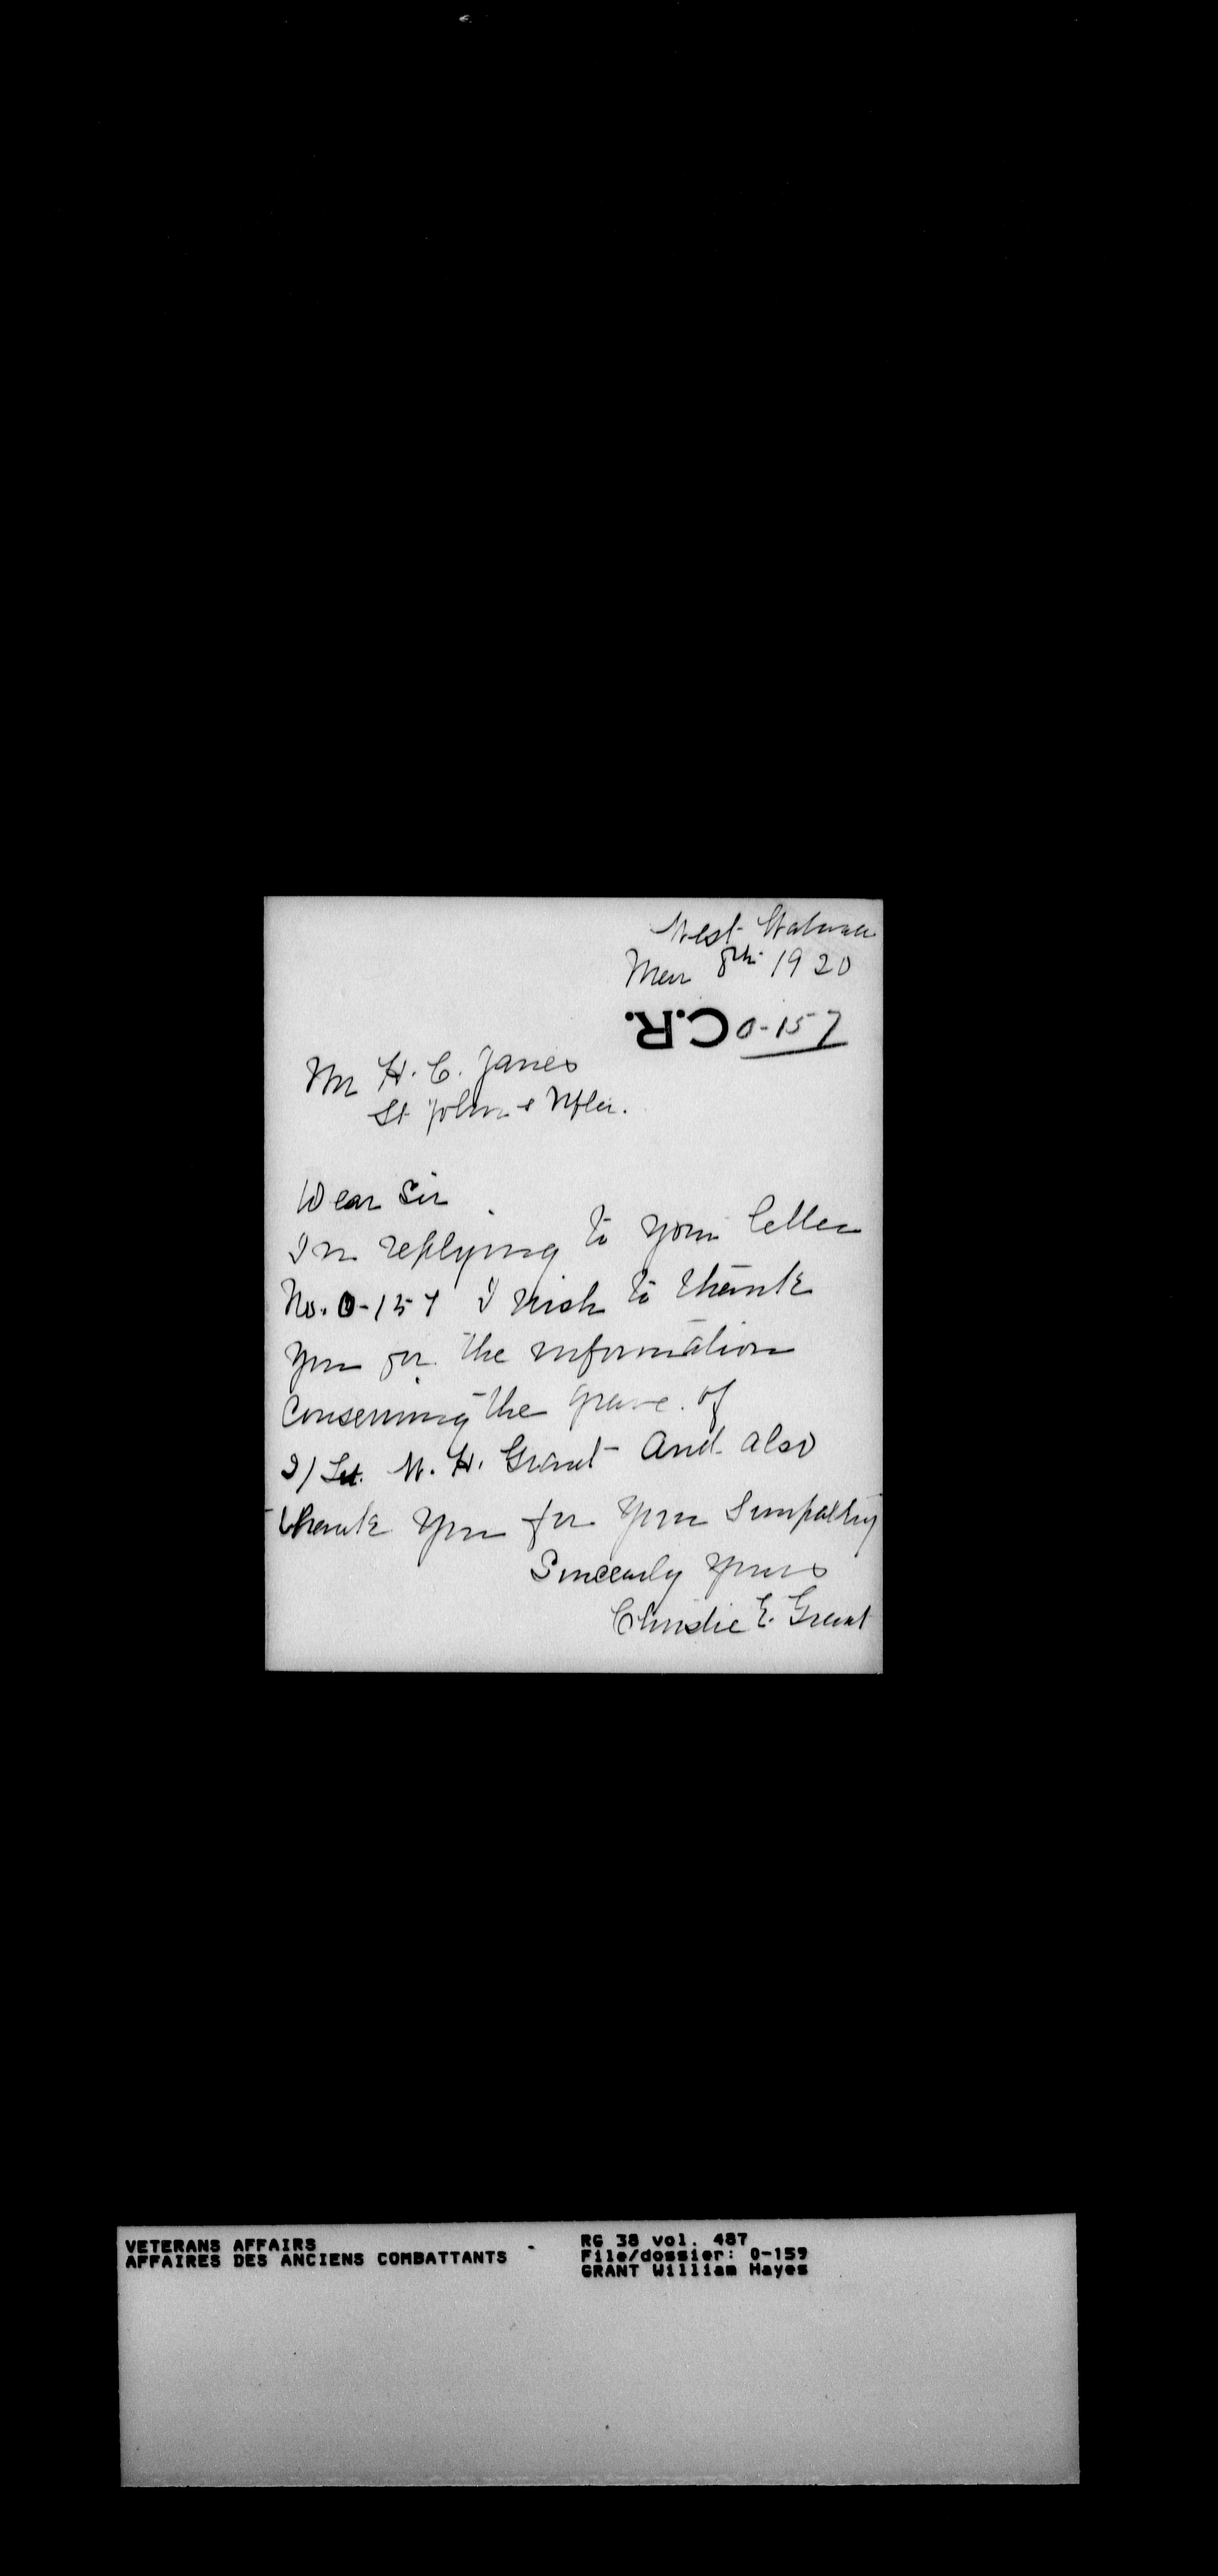 West
Mar 8th 1920
C.R. 0-157
Mr H. C. Janes
St John's Nfld.
Dear Sir
In replying to your letter
No. 0-157 I wish to thank
you for the information
Conserning the grave of
2/Lt. W. H. Grant and also
thank you for your Simpathy
Sincearly yours
Christie E. Grant
VETERANS AFFAIRS
AFFAIRES DES ANCIENS COMBATTANTS
RG 38 vol. 487
File/dossier: 0-159
GRANT William Hayes